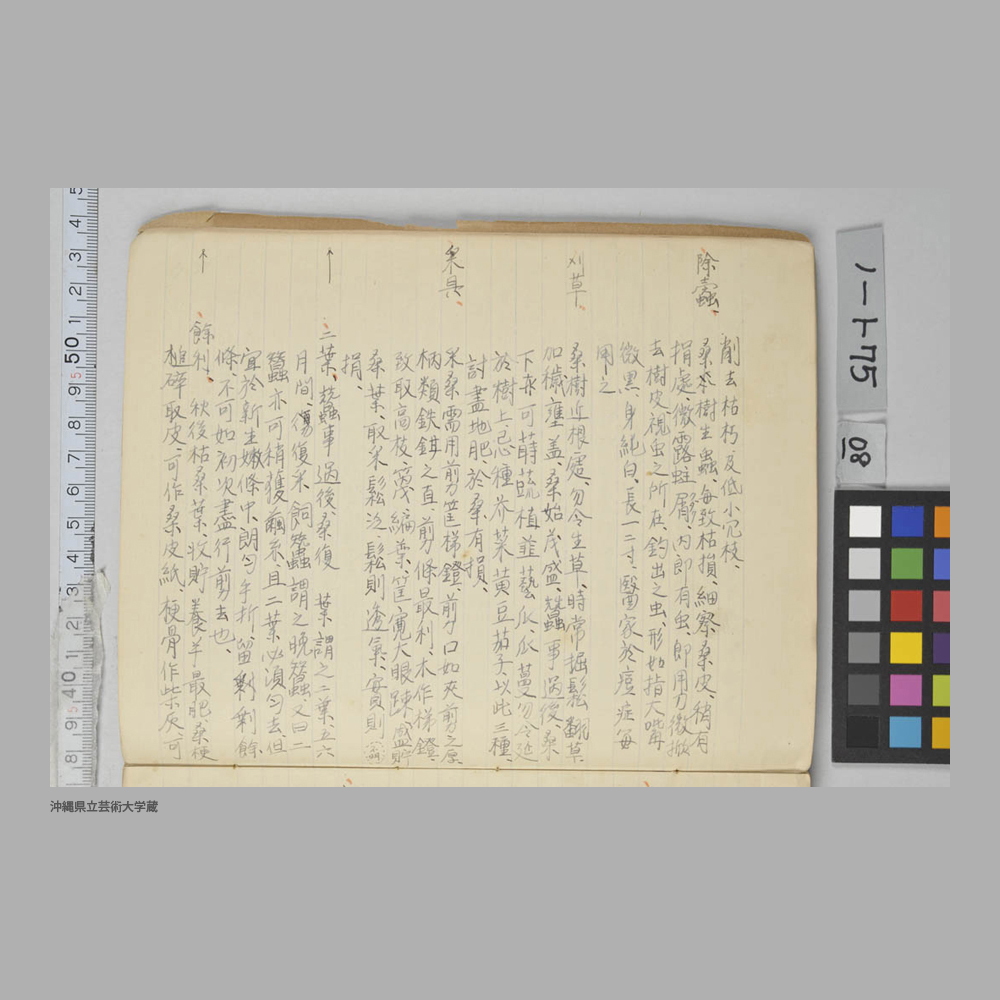 削去枯朽、及低小冗枝、
除蠹
桑本樹生蟲、每致枯損、細察桑皮、稍有
損處、微露蛀屑、內即有虫、即用刀微撥
去樹皮、視虫之所在、鈎出之虫、形如指大嘴
微黑、身純白、長一二寸、醫家於痘症每
用之
刈草
桑樹近根處、勿令生草、時常掘鬆翻草、
加穢壅蓋、桑始茂盛、蠶事過後、桑
下亦可蒔蔬植韮藝瓜、瓜蔓勿令延
於樹上、忌種芥菜黃豆茄子、以此三種、
討盡地肥、於桑有損、
采具
采桑需用剪筐梯鐙、剪口如夾剪之
柄類鉄鉗之直、剪條最利、木作梯鐙、
致取高枝、篾編葉筐、寬大眼疎、盛貯
桑葉、取采鬆泛、鬆則透氣、實則
損、
↑
二葉、蠶事過後桑復 葉謂之二葉、五六
月間、復采飼蠶、謂之晚蠶、又曰二
蠶、亦可稍獲繭糸、且二葉必須勻去、但
宜於新生嫩條中、朗勻手折、留剩餘
條、不可如初次盡行剪去也、
↑
餘利、秋後枯桑葉、收貯養羊最肥、桑梗
槌碎取皮、可作桑皮紙、梗骨作柴灰、可
ノート75
08
5 4 3 2 1 50 9 8 7 6 5 4 3 2 1 40 9 8
沖縄県立芸術大学蔵